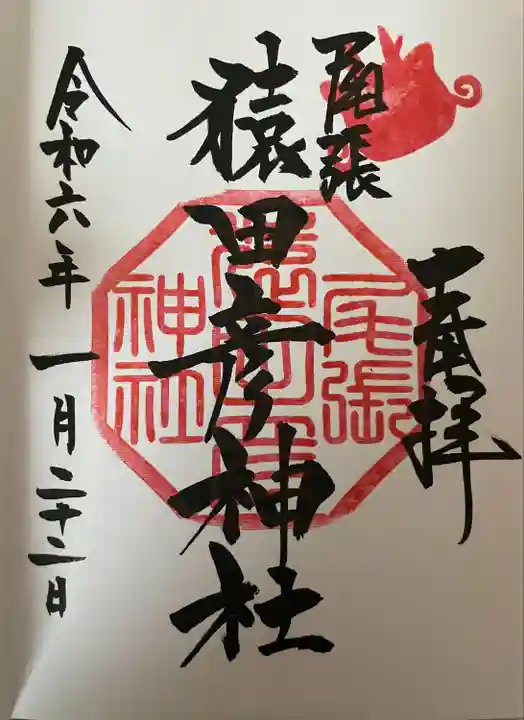 奉拝
尾張
猿田彦神社
令和六年 一月二十二日
尾張
猿田彦
神社